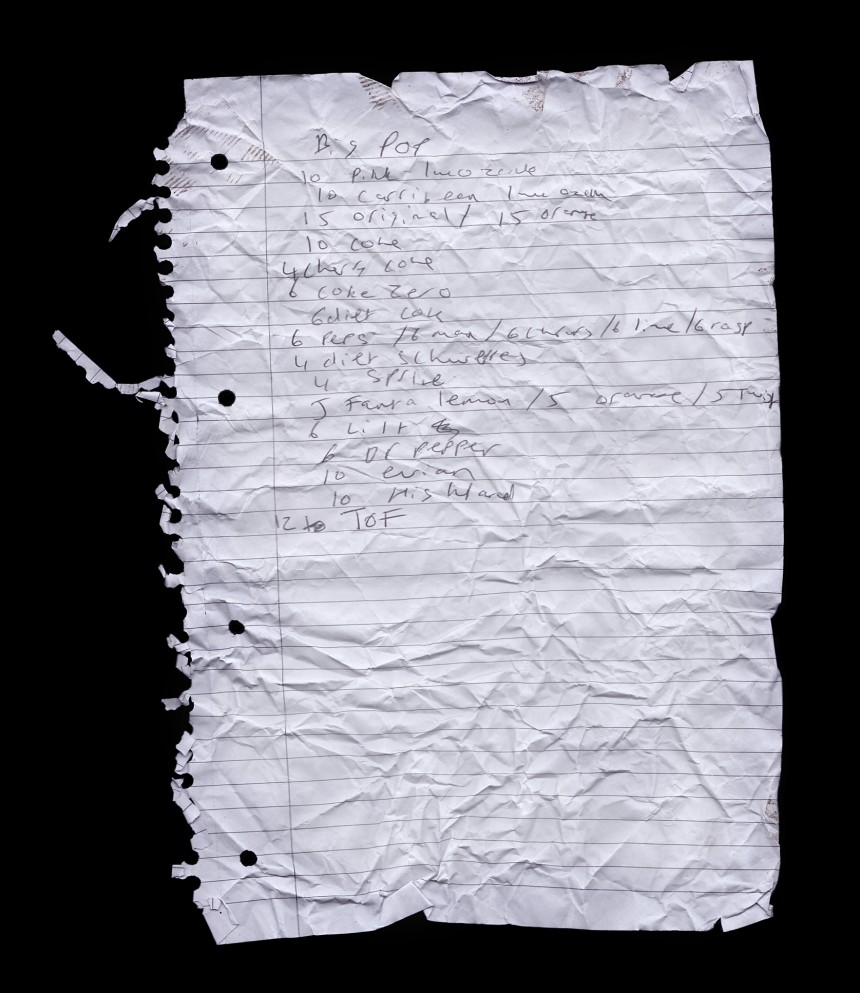 Big Pop
10 Pink lucozade
10 carribean lucozade
15 original / 15 orange
10 coke
4 cherry coke
6 coke zero
6 diet coke
6 peps / 6 max / 6 / 6 lime / 6 rasp
4 diet
4 Sprite
5 Fanta lemon / 5 orange / 5 Twist
6 Lilt
6 Dr pepper
10 evian
10 Highland
12 TOF